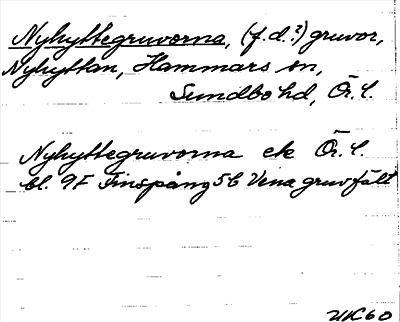 Nyhyttegruvorna, (f.d.?) gruvor,
Nyhyttan, Hammars sn,
Sundbo hd, Ör. l.
Nyhyttegruvorna ek Ör. l.
bl. 9F Finspång 5b Vena gruvfält
UK60